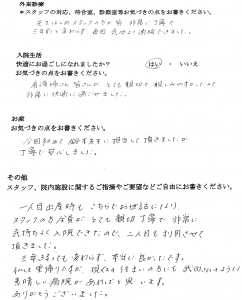 外来診療
*スタッフの対応、待合室、診察室等お気づきの点をお書きください。
先生はじめスタッフの方が皆 非常に丁寧で
三年前と変わらず 毎回 気分よく通院できました。
入院生活
快適にお過ごしになれましたか? はい ・ いいえ
お気づきの点をお書きください。
看護師さん皆さんが とても親切で 親しみやすかったので
非常に快適に過ごせました。
お産
お気づきの点をお書きください。
今回初めて 先生に担当して頂きましたが
丁寧で安心しました。
その他
スタッフ、院内施設に関するご指摘やご要望などご自由にお書きください。
一人目出産時も こちらでお世話になり、
スタッフの方全員が とても親切 丁寧で 非常に
気持ちよく入院できたので、二人目も利用させて
頂きました。
三年経っても変わらず、本当に良かったです。
私は里帰りですが、現在の住まいの方にも このような
素晴しい病院があればと思います。
ありがとうございました。